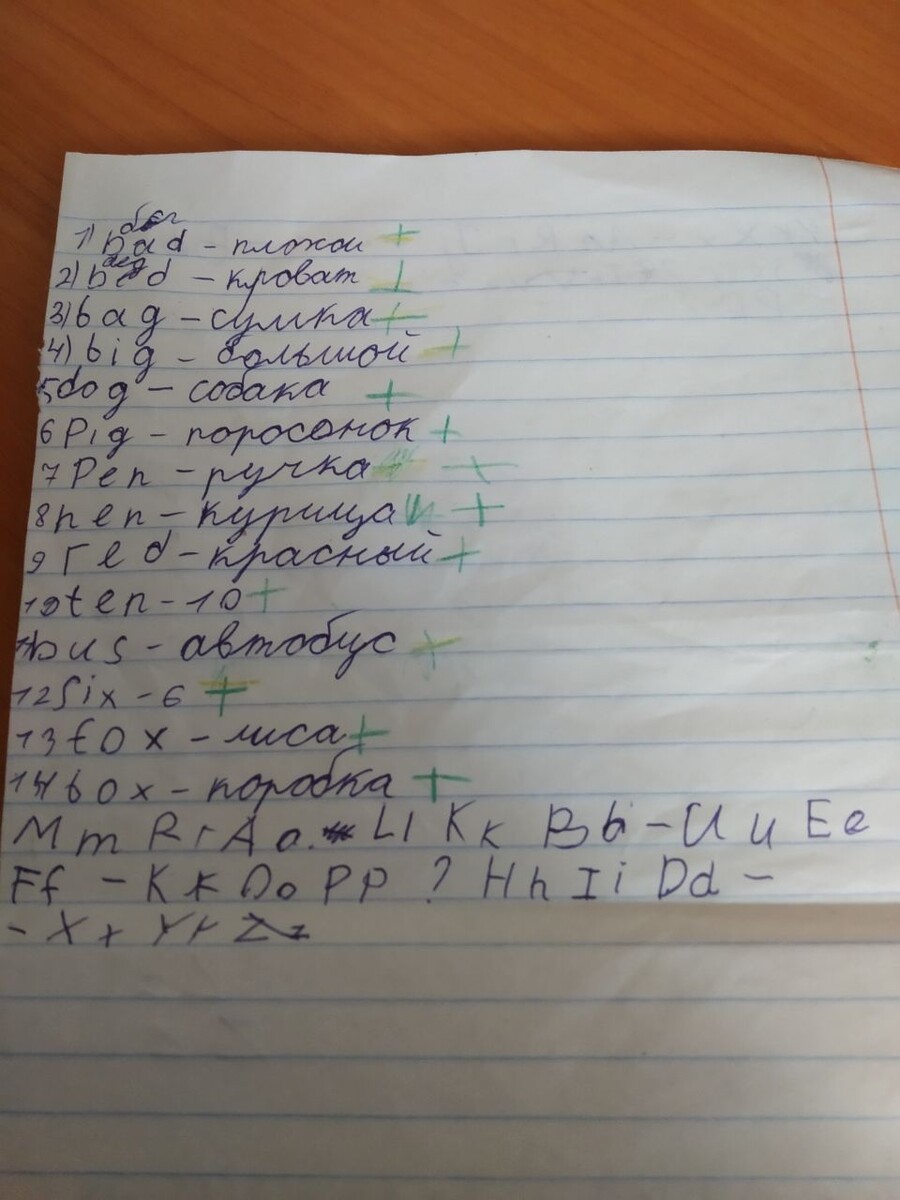 1) bad - плохои +
2) bed - кроват +
3) bag - сумка +
4) big - большой +
5 dog - собака +
6 Pig - поросонок +
7 Pen - ручка +
8 hen - курица +
9 red - красный +
10 ten - 10 +
11 bus - автобус +
12 Six - 6 +
13 fox - лиса +
14 box - коробка +
Mm Rr Aa Ll Kk Bb - Uu Ee
Ff - Kk Oo Pp ? Hh Ii Dd -
- Xx Yy Zz